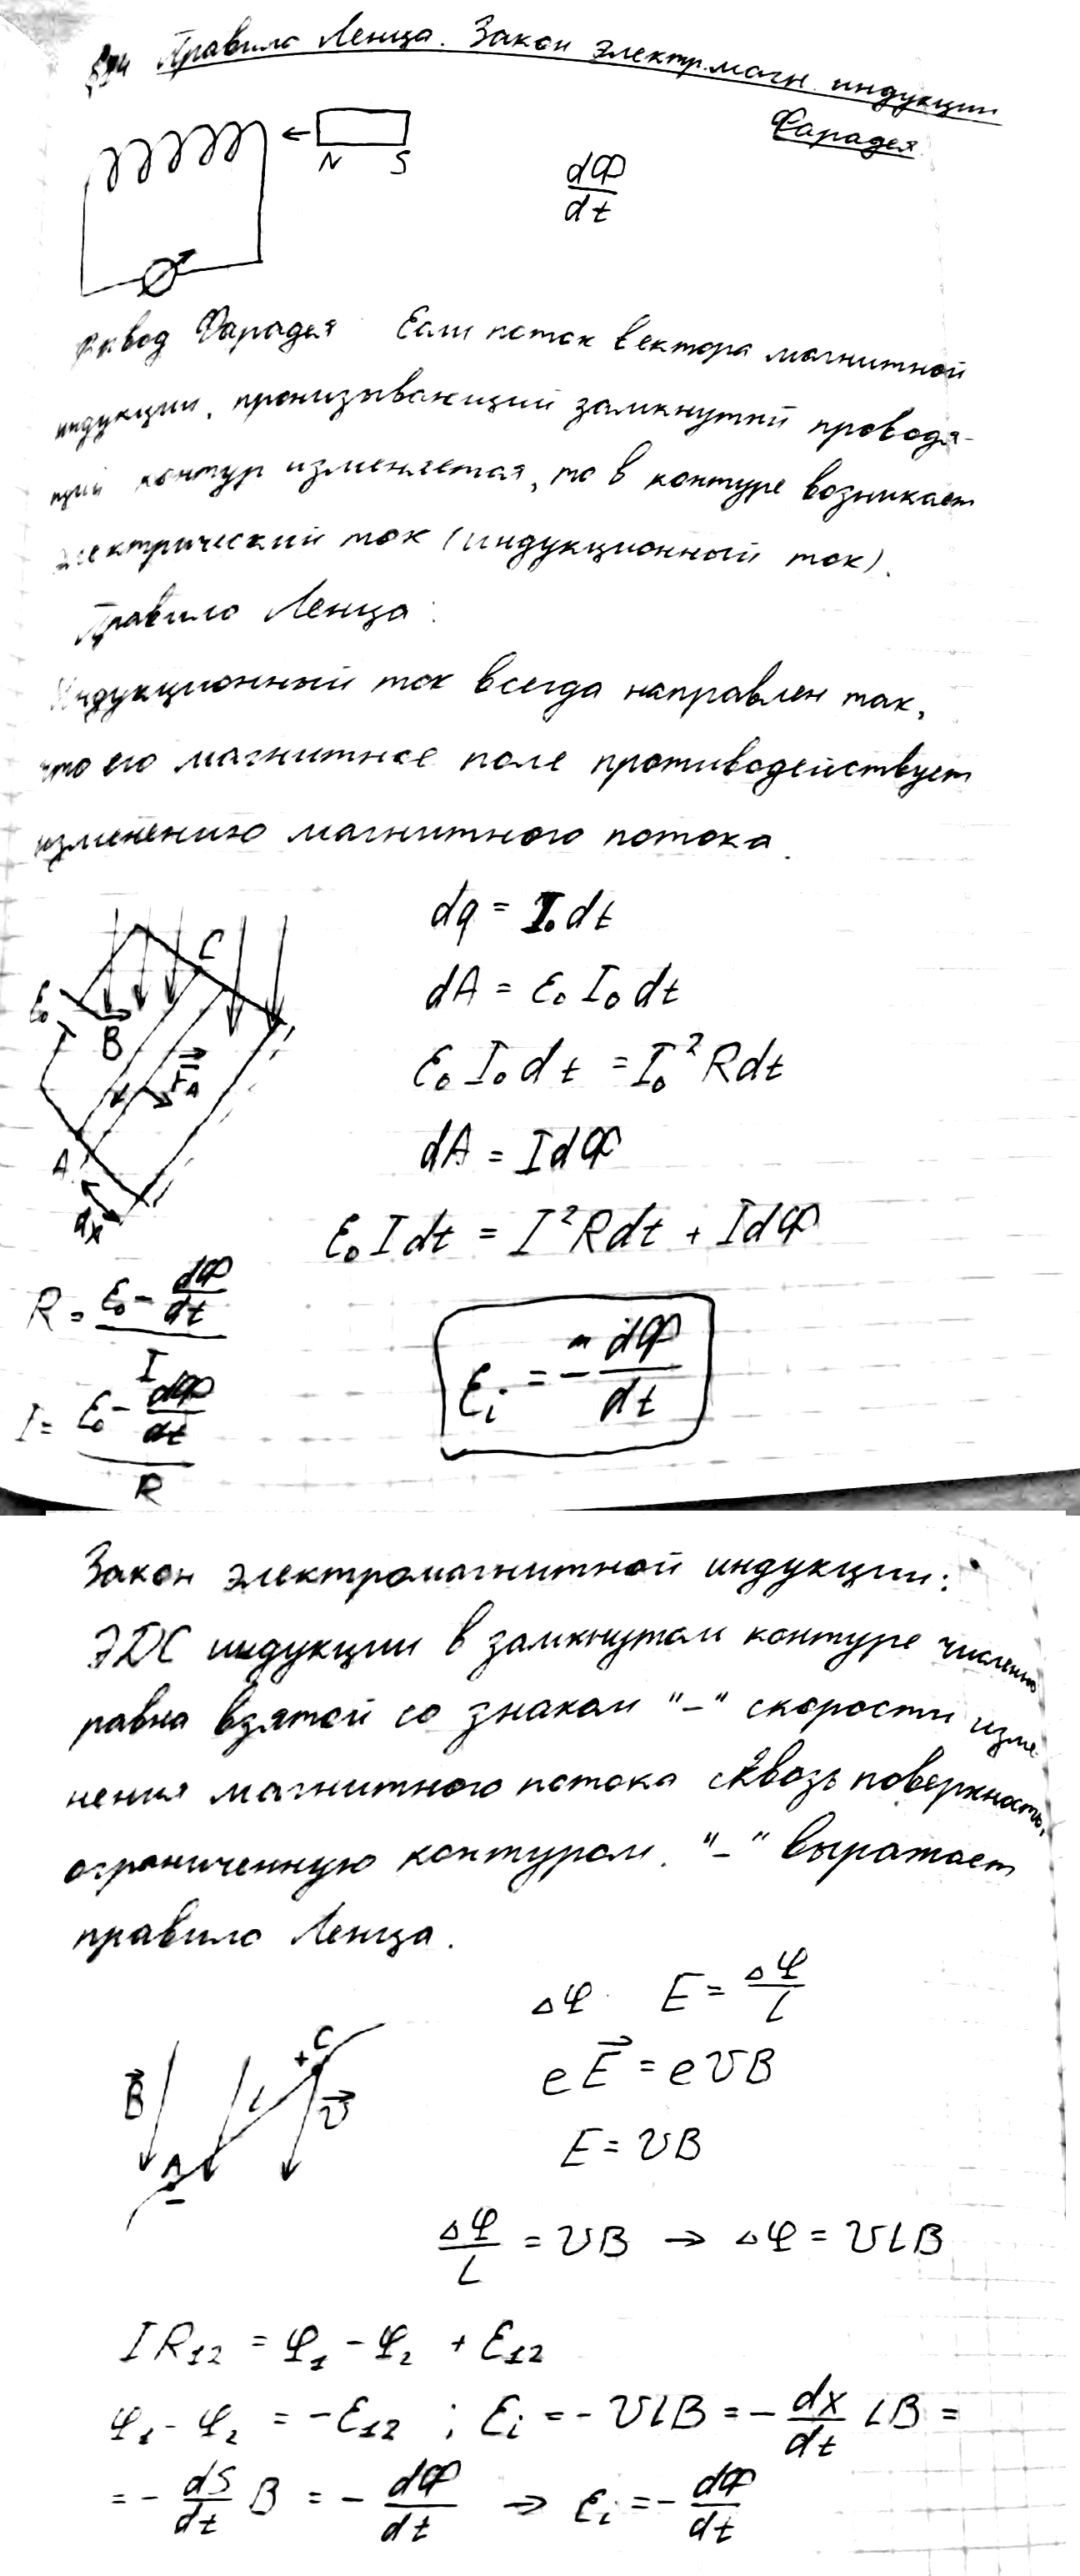 Правило Ленца. Закон электр.магн. индукции
Фарадея.
N S
dФ/dt
Вывод Фарадея Если поток вектора магнитной
индукции, пронизывающий замкнутый проводя-
щий контур изменяется, то в контуре возникает
электрический ток (индукционный ток).
Правило Ленца:
Индукционный ток всегда направлен так,
что его магнитное поле противодействует
изменению магнитного потока.
dq = I₀dt
C
dA = ℰ₀ I₀ dt
ℰ₀
B
ℰ₀ I₀ dt = I₀² R dt
F⃗_A
dA = I dФ
A
dx
ℰ₀ I dt = I² R dt + I dФ
R = (ℰ₀ - dФ/dt)/I
ℰi = - dФ/dt
I = (ℰ₀ - dФ/dt)/R
Закон электромагнитной индукции:
ЭДС индукции в замкнутом контуре численно
равна взятой со знаком "-" скорости изме-
нения магнитного потока сквозь поверхность,
ограниченную контуром. "-" выражает
правило Ленца.
Δφ E = Δφ/l
B⃗ l + C v⃗
A -
eE⃗ = evB
E = vB
Δφ/l = vB → Δφ = vlB
IR₁₂ = φ₁ - φ₂ + ℰ₁₂
φ₁ - φ₂ = -ℰ₁₂ ; ℰi = - vlB = - dx/dt lB =
= - dS/dt B = - dФ/dt → ℰi = - dФ/dt